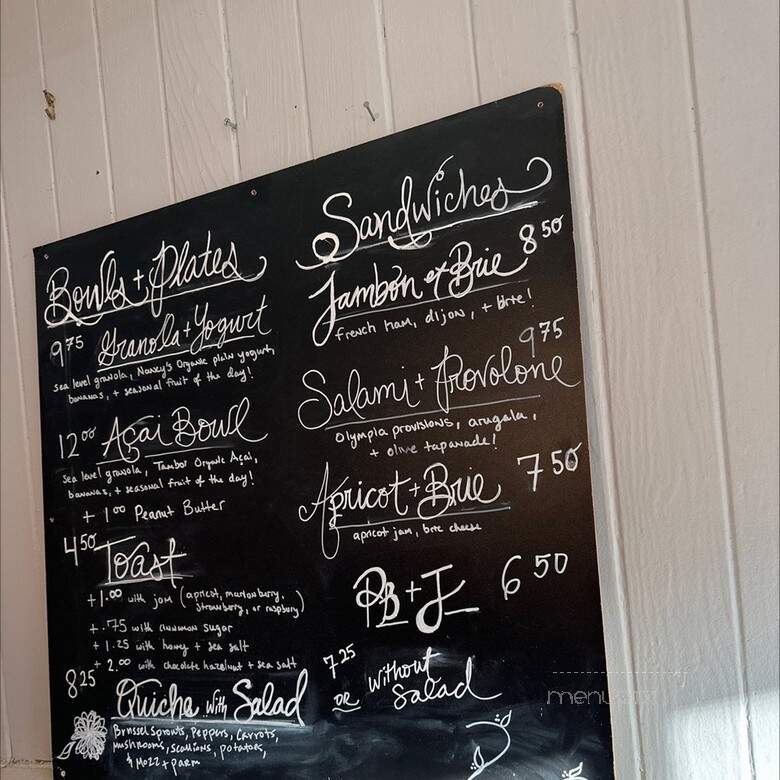 Bowls + Plates
9 75 Granola + Yogurt
sea level granola, Nancy's Organic plain yogurt,
bananas, + seasonal fruit of the day!
12 00 Açai Bowl
sea level granola, Tambor Organic Açai,
bananas, + seasonal fruit of the day!
+ 1 00 Peanut Butter
4 50 Toast
+1.00 with jam (apricot, marionberry,
strawberry, or raspbury)
+ .75 with cinnamon sugar
+ 1.25 with honey + sea salt
+ 2.00 with chocolate hazelnut + sea salt
8 25 Quiche with Salad
Brussel sprouts, Peppers, Carrots,
mushrooms, scallions, potatoes,
& Mozz + parm
7 25
OR without
Salad
Sandwiches
Jambon et Brie 8 50
french ham, dijon, + brie!
Salami + Provolone 9 75
Olympia provisions, arugala,
+ olive tapanade!
Apricot + Brie 7 50
apricot jam, brie cheese
PB + J 6 50